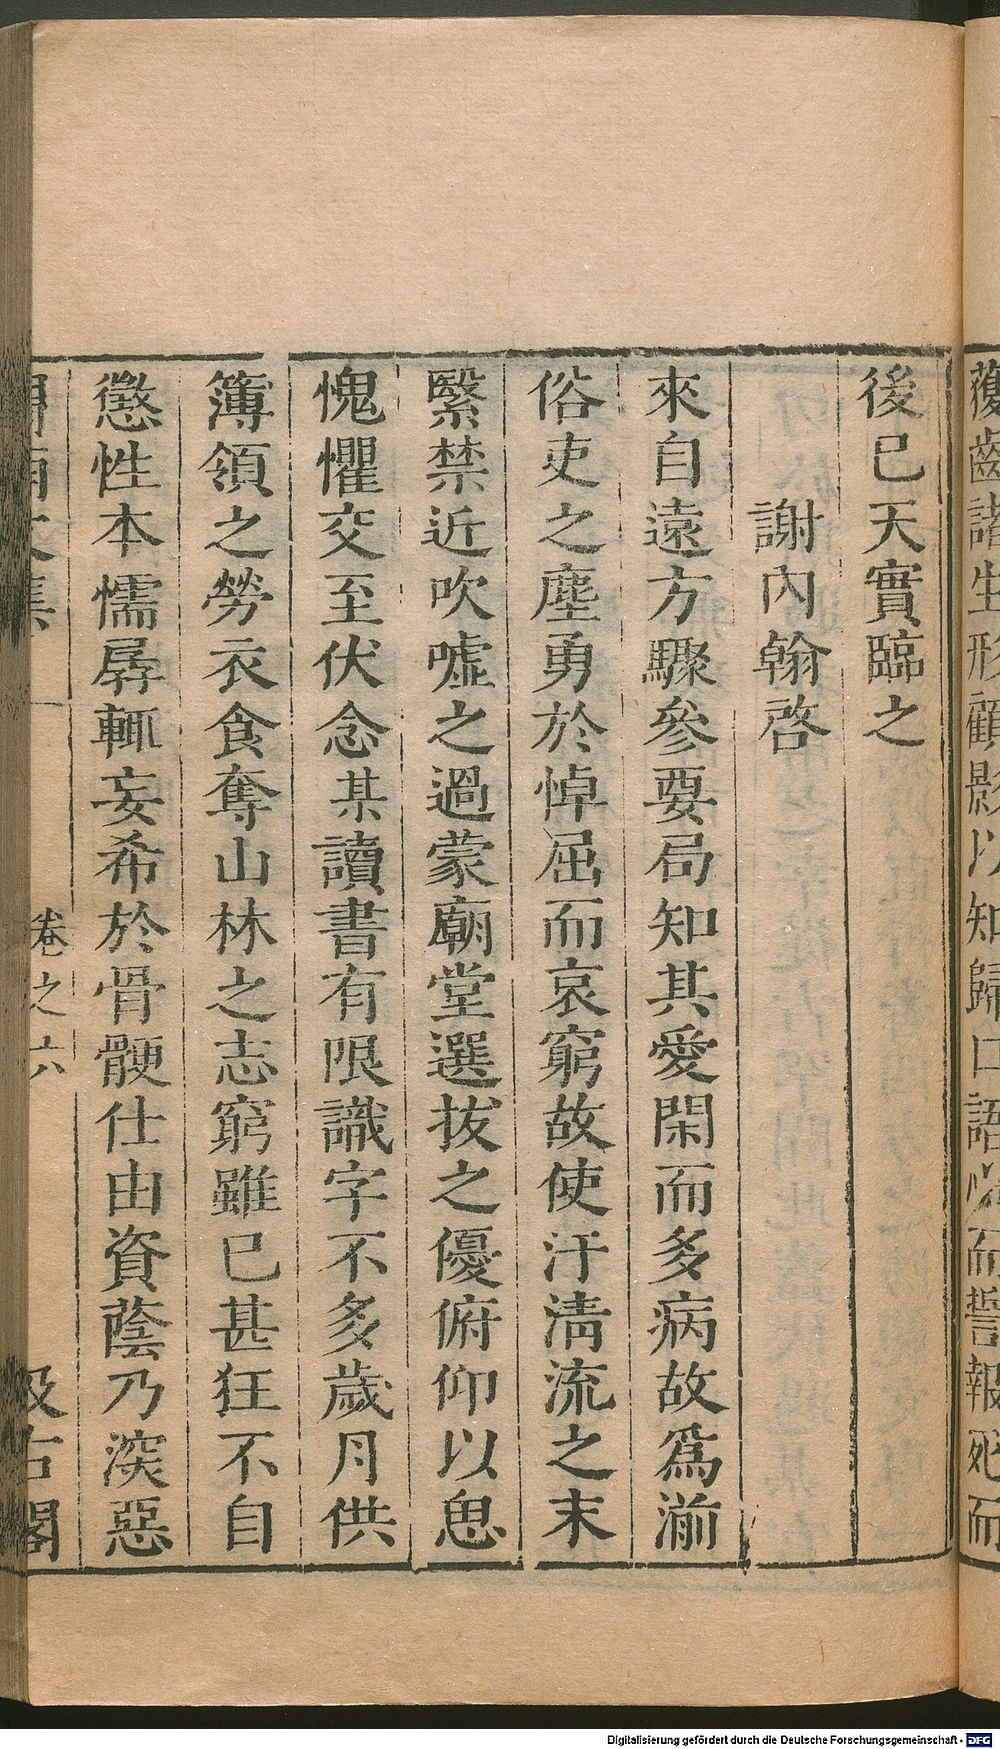 䪥齒諸生形顧影以知歸口語心而誓報死而
後已天實臨之
謝內翰啓
來自遠方驟參要局知其愛閑而多病故爲湔
俗吏之塵勇於悼屈而哀窮故使汙淸流之末
繄禁近吹噓之過蒙廟堂選拔之優俯仰以思
愧懼交至伏念某讀書有限識字不多歲月供
簿領之勞衣食奪山林之志窮雖已甚狂不自
懲性本懦孱輒妄希於骨骾仕由資蔭乃深惡
渭南文集
卷之六
汲古閣
Digitalisierung gefördert durch die Deutsche Forschungsgemeinschaft - DFG